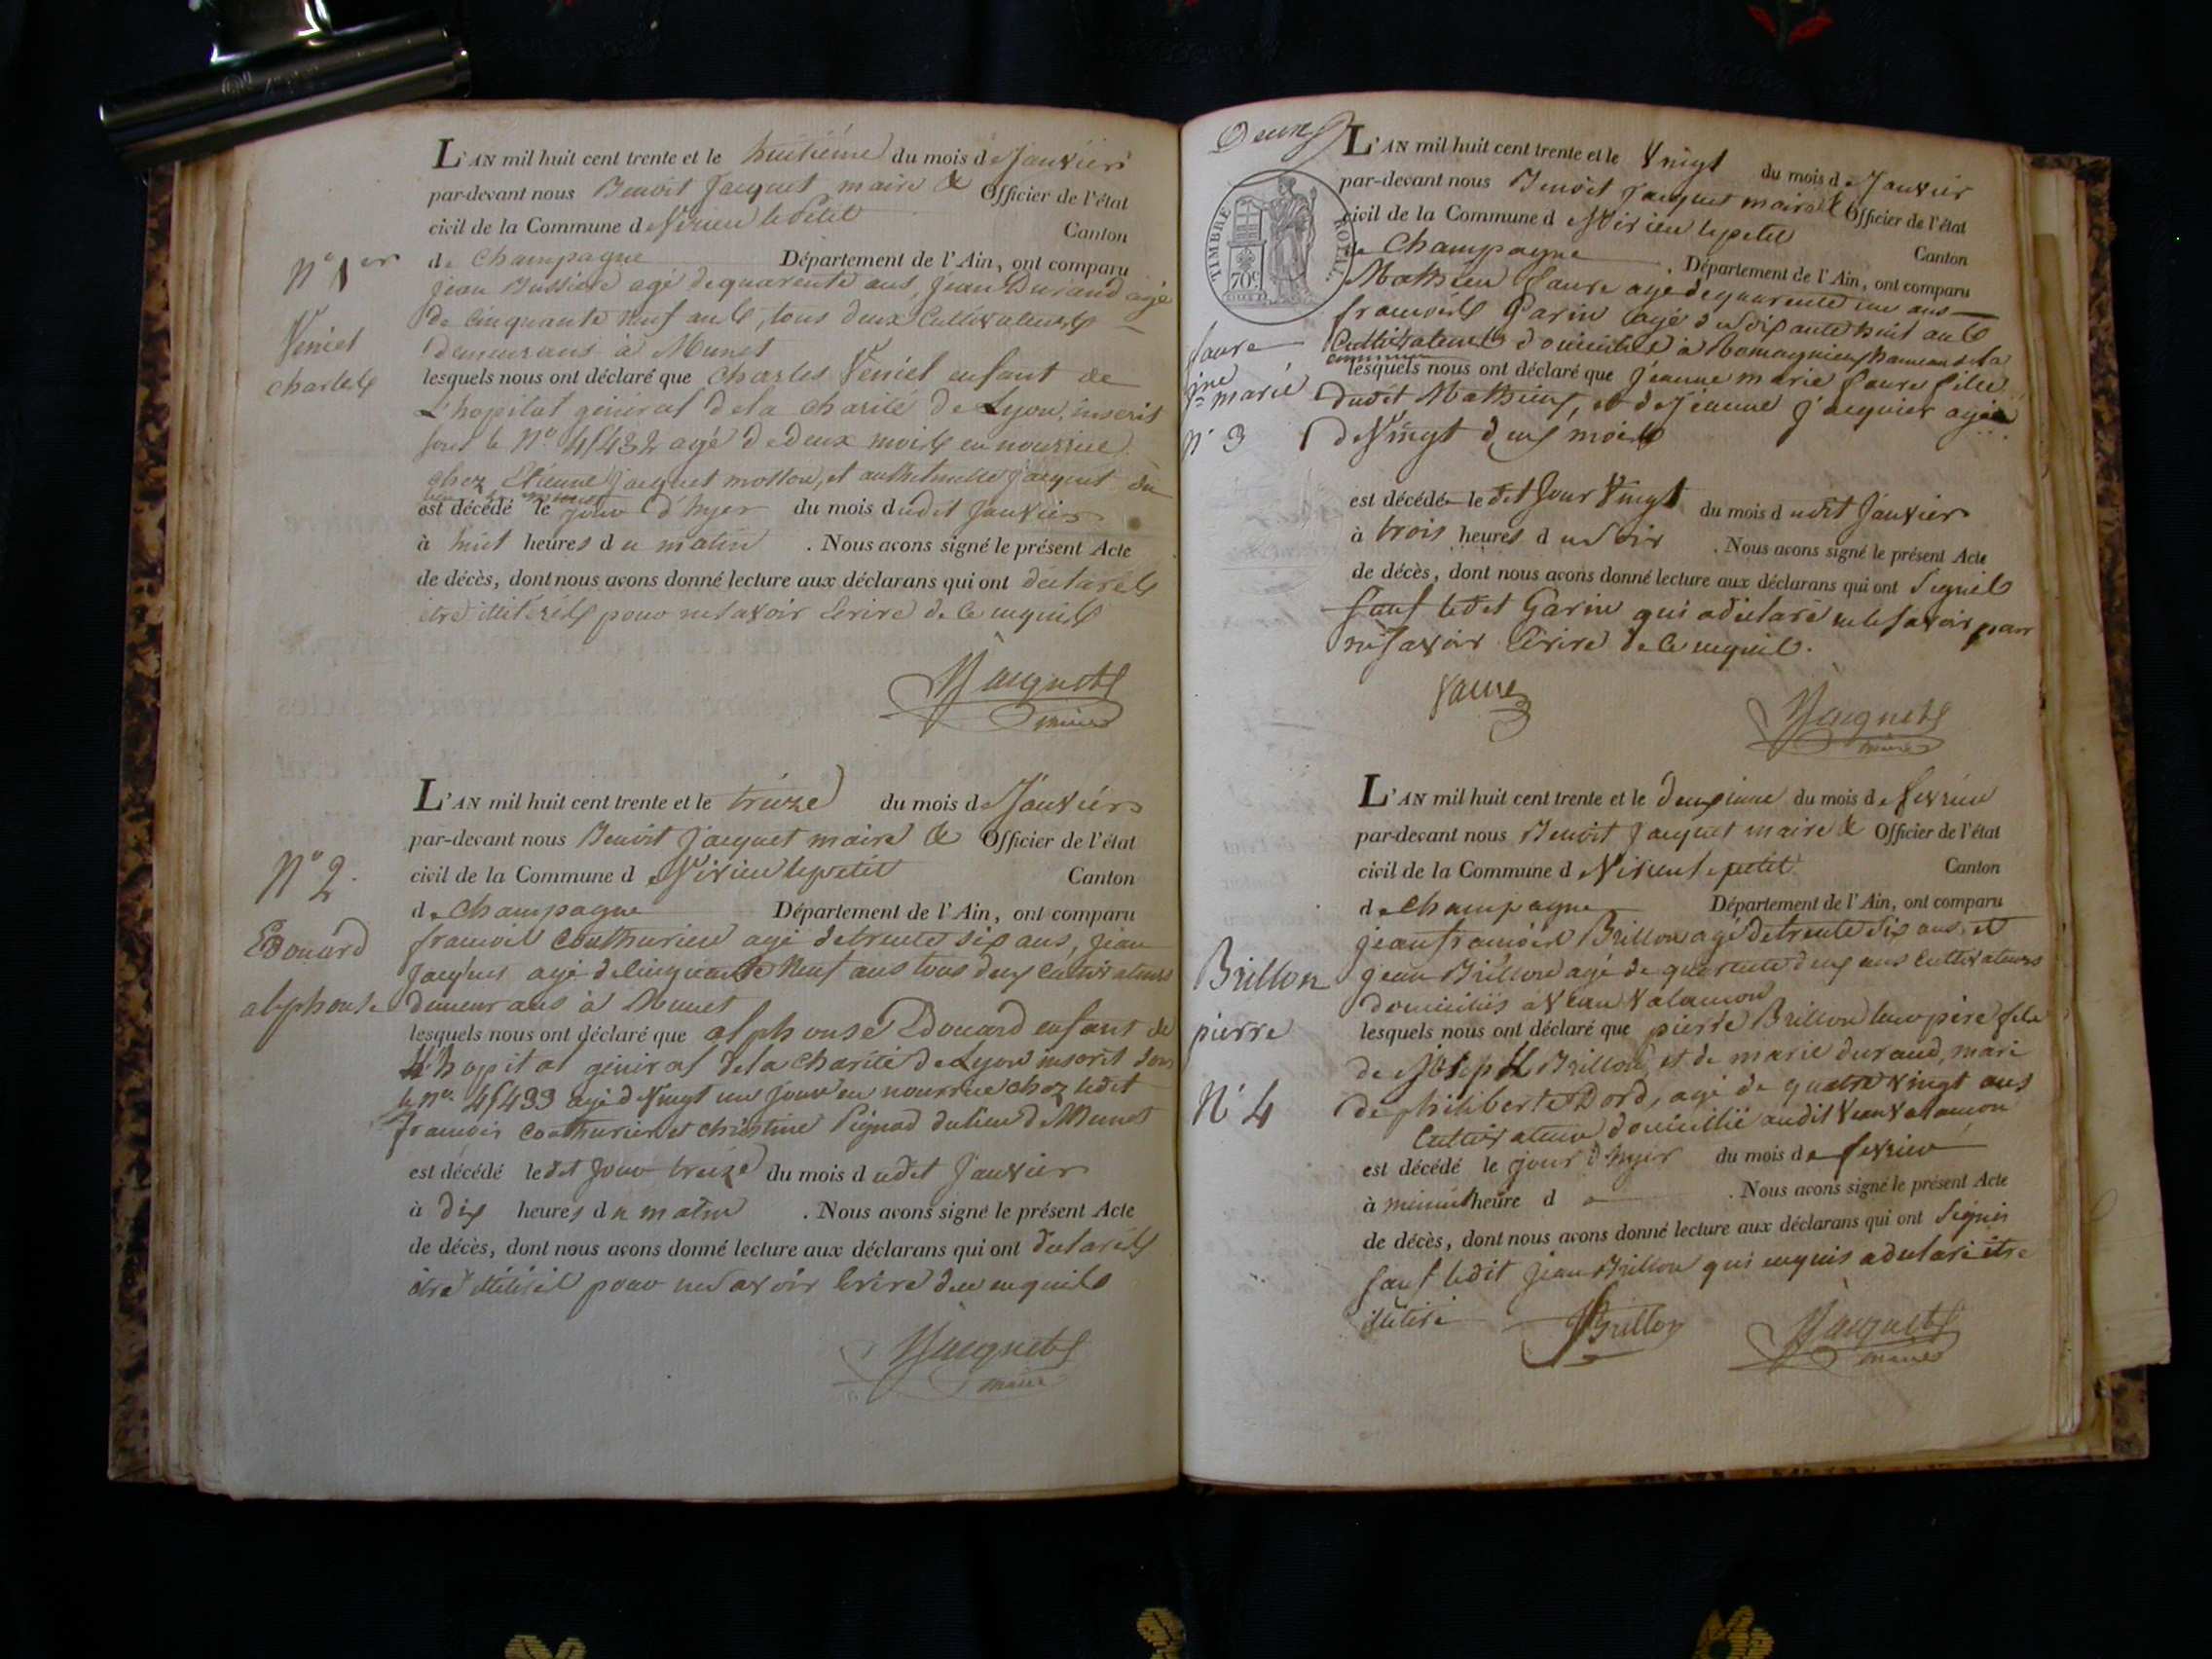 L'AN mil huit cent trente et le huitiéme du mois de Janvier
par-devant nous Benoit Jacquet maire & Officier de l'état
civil de la Commune de Virieu le Petit
Canton
de Champagne Département de l'Ain, ont comparu
N° 1er
jean agé de quarente ans, jean Durand agé
de cinquante neuf ans, tous deux Cultivateurs
Veniel
demeurans à Munet
charles
lesquels nous ont déclaré que Charles Veniel enfant de
L'hopital général de la charité de Lyon, inscrit
sous le N° 45432 agé de deux mois en nourrice
chez Etienne Jacquet mottou, et anthelmette Jacquet du
lieu de munet
est décédé le jour d'hyer du mois dudit Janvier
à huit heures du matin . Nous avons signé le présent Acte
de décès, dont nous avons donné lecture aux déclarans qui ont déclarés
être illitérés pour ne savoir Ecrire de ce enquis
Jacquet
maire
L'AN mil huit cent trente et le treize du mois de Janvier
par-devant nous Benoit Jacquet maire & Officier de l'état
N° 2.
civil de la Commune de Virieu le petit Canton
de Champagne Département de l'Ain, ont comparu
Edouard
françois Couthurieu agé de trente six ans, jean
Jacques agé de cinquante neuf ans tous deux Cultivateurs
alphonse
demeurans à Munet
lesquels nous ont déclaré que alphonse Edouard enfant de
L'hopital général de la charité de Lyon inscrit sous
le n° 45433 agé de Vingt un jour en nourrice chez ledit
françois Couthurier et christine Pignod du lieu de Munet
est décédé ledit jour treize du mois dudit Janvier
à dix heures du matin . Nous avons signé le présent Acte
de décès, dont nous avons donné lecture aux déclarans qui ont déclarés
être illitéré pour ne savoir Ecrire de ce enquis
Jacquet
maire
Deux
L'AN mil huit cent trente et le Vingt du mois de Janvier
par-devant nous Benoit Jacquet maire & Officier de l'état
TIMBRE ROYAL.
70c
civil de la Commune de Virieu le petit
Canton
de Champagne , Département de l'Ain, ont comparu
Mathieu Faure agé de quarente un ans
françois Garin agé de soixante huit ans
faure
Cultivateurs domiciliés à Romagnieu hameau de la
commune
lesquels nous ont déclaré que Jeanne marie faure fille
jne marie
dudit Mathieu, et de Jeanne Jacquier agée
N° 3
de Vingt deux mois
est décédée le dit Jour Vingt du mois dudit Janvier
à trois heures du soir . Nous avons signé le présent Acte
de décès, dont nous avons donné lecture aux déclarans qui ont signés
sauf ledit Garin qui a déclaré ne le savoir pour
ne savoir Ecrire de ce enquis.
faure
Jacquet
maire
L'AN mil huit cent trente et le deuxieme du mois de fevrier
par-devant nous Benoit Jacquet maire & Officier de l'état
civil de la Commune de Virieu le petit Canton
de Champagne Département de l'Ain, ont comparu
jean françois Brillon agé de trente six ans, et
Brillon
jean Brillon agé de quarente deux ans cultivateurs
domiciliés à Veau Valamon
pierre
lesquels nous ont déclaré que pierre Brillon leur père fils
de Joseph Brillon, et de marie durand, mari
N° 4
de philiberte Dord, agé de quatre vingt ans
Cultivateur domicillié audit Veau Valamon
est décédé le jour d'hyer du mois de fevrier
à minuit heure d . Nous avons signé le présent Acte
de décès, dont nous avons donné lecture aux déclarans qui ont signés
sauf ledit jean Brillon qui enquis a déclaré être
illitéré
Brillon
Jacquet
maire